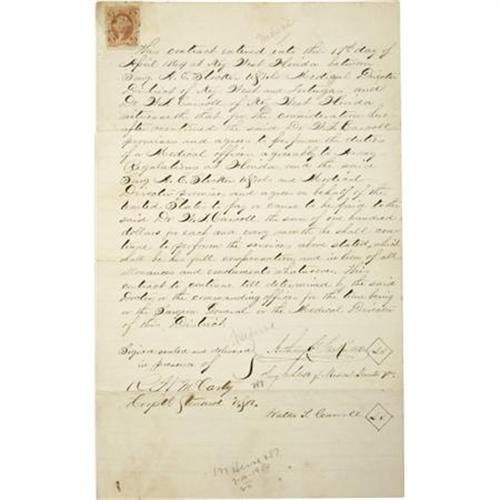 This contract entered into this 11th day of
April 1864 at Key West Florida between
Surg A. E. Stocker U.S. Vols Medical Director
District of Key West and Tortugas and
Dr W. S. Carroll of Key West Florida
witnesseth that for the consideration here
after mentioned the said Dr W. S. Carroll
promises and agrees to perform the duties
of a Medical officer agreeably to Army
Regulations at Florida and the said
Surg A. E. Stocker U.S. Vols and Medical
Director promises and agrees on behalf of the
United States to pay or cause to be paid to the
said Dr W. S. Carroll the sum of one hundred
dollars for each and every month he shall con
tinue to perform the services above stated, which
shall be his full compensation, and in lieu of all
allowances and emoluments whatsoever. This
contract to continue till determined by the said
Doctor or the commanding officer for the time being
or the Surgeon General or the Medical Director
of this District
Signed sealed and delivered
in presence of
McCarty
Hospital Steward U.S.A.
Walter S. Carroll
L.S.